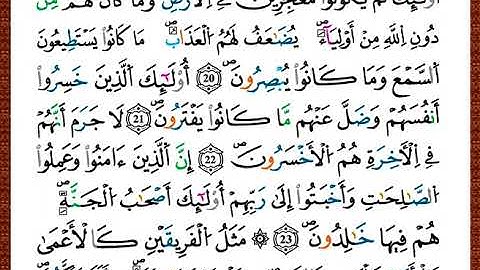 أُوْلَٰٓئِكَ لَمْ يَكُونُواْ مُعْجِزِينَ فِے اِ۬لَارْضِ وَمَا كَانَ لَهُم مِّن
دُونِ اِ۬للَّهِ مِنَ اَوْلِيَآءَۖ يُضَٰعَفُ لَهُمُ اُ۬لْعَذَابُۖ مَا كَانُواْ يَسْتَطِيعُونَ
اَ۬لسَّمْعَ وَمَا كَانُواْ يُبْصِرُونَۖ 20 أُوْلَٰٓئِكَ اَ۬لذِينَ خَسِرُوٓاْ
أَنفُسَهُمْ وَضَلَّ عَنْهُم مَّا كَانُواْ يَفْتَرُونَۖ 21 لَا جَرَمَ أَنَّهُمْ
فِے اِ۬لَاخِرَةِ هُمُ اُ۬لَاخْسَرُونَۖ 22 إِنَّ اَ۬لذِينَ ءَامَنُواْ وَعَمِلُواْ
اُ۬لصَّٰلِحَٰتِ وَأَخْبَتُوٓاْ إِلَىٰ رَبِّهِمُۥٓ أُوْلَٰٓئِكَ أَصْحَٰبُ اُ۬لْجَنَّةِۖ
هُمْ فِيهَا خَٰلِدُونَۖ 23 ۞ مَثَلُ اُ۬لْفَرِيقَيْنِ كَالَاعْمَىٰ